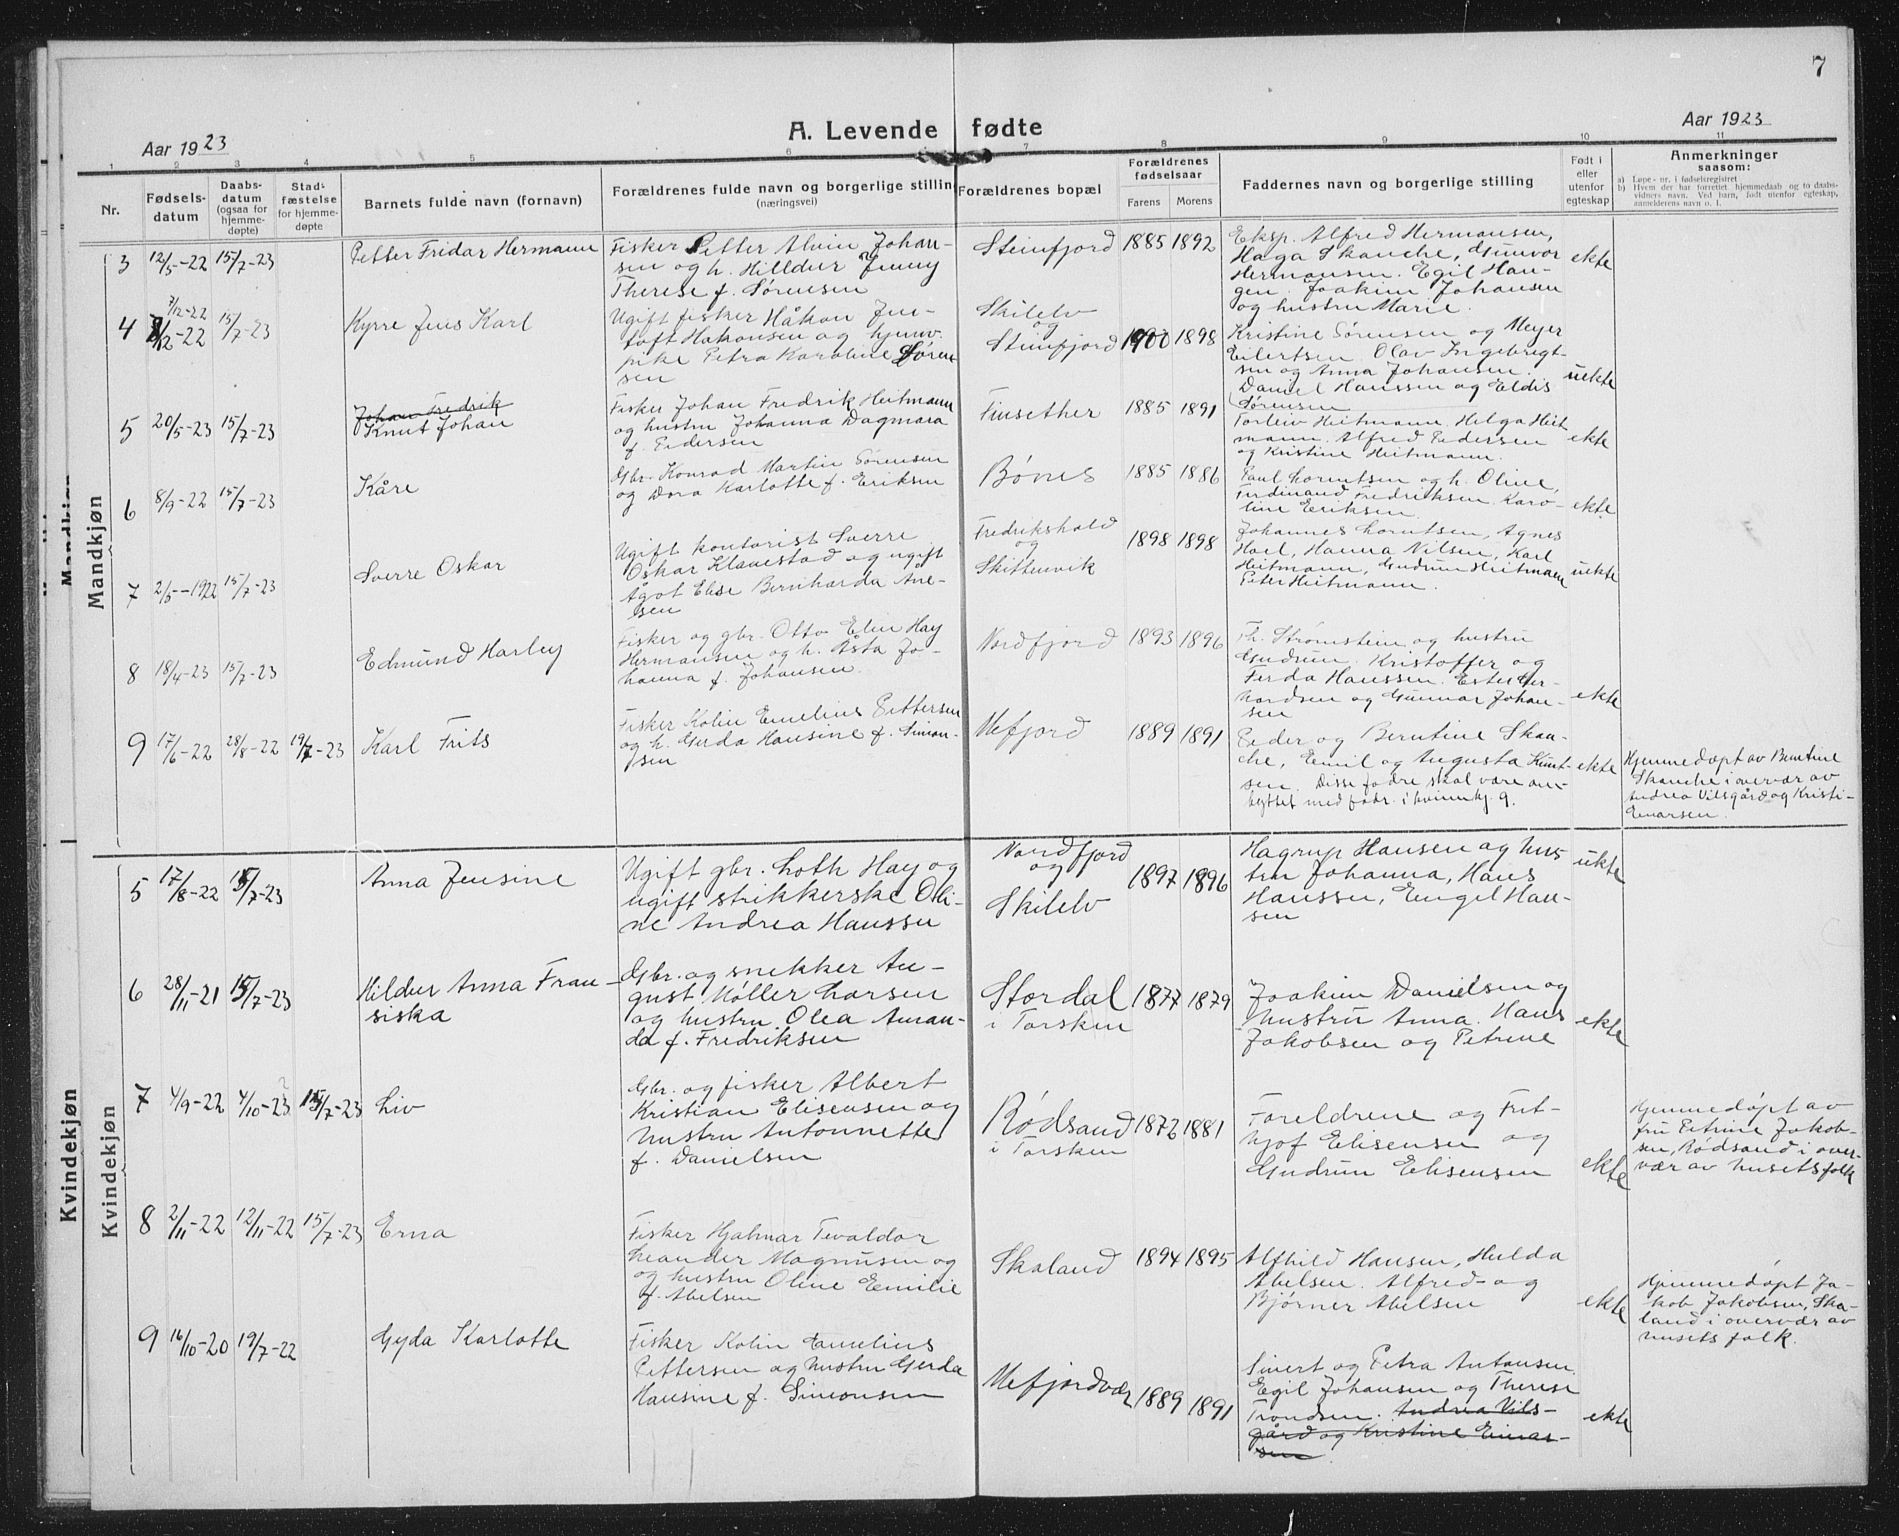 7
Aar 1923
A. Levende fødte
Aar 1923
1 2 3 4 5 6 7 8 9 10 11
Nr.
Fødsels-
datum
Daabs-
datum
(ogsaa for
hjemme-
døpte)
Stad-
fæstelse
for hjemme-
døpte
Barnets fulde navn (fornavn)
Forældrenes fulde navn og borgerlige stilling
(næringsvei)
Forældrenes bopæl
Forældrenes
fødselsaar
Farens Morens
Faddernes navn og borgerlige stilling
Født i
eller
utenfor
egteskap
Anmerkninger
saasom:
a) Løpe-nr. i fødselsregistret
b) Hvem der har forrettet hjemmedaab og to daabs-
vidners navn. Ved barn, født utenfor egteskap,
anmelderens navn o. l.
Mandkjøn
3 12/5-22 15/7-23 Petter Fridar Hermann
Fisker Petter Alvin Johan-
sen og h. Hilldur Jenny
Therese f. Sørensen
Steinfjord 1885 1892
Eksp. Alfred Hermansen,
Haga Skanche, Gunvor
Hermansen. Egil Han-
gen. Joakim Johansen
og hustru Marie.
ekte
4 7/12-22
/12-22 15/7-23 Kyrre Jens Karl
Ugift fisker Håkon Jen-
toft Hakonsen og hjemv.
pike Petra Karoline Søren
sen
Skilelv
og
Steinfjord 1900 1898
Kristine Sørensen og Meyer
Eilertsen. Olav Ingebrigt-
sen og Anna Johansen.
Daniel Hanssen og Eldis
Sørensen
uekte
5 20/5-23 15/7-23 Johan Fredrik
Knut Johan
Fisker Johan Fredrik Heitmann
og hustru Johanna Dagmara
f. Pedersen
Finsether 1885 1891
Torleiv Heitmann. Helga Heit
mann. Alfred Pedersen
og Kristine Heitmann.
ekte
6 8/9-22 15/7-23 Kåre
Gbr. Konrad Martin Sørensen
og Dora Karlotte f. Eriksen
Bønes 1885 1886
Paul Lorentsen og h. Oline,
Ferdinand Fredriksen. Karo-
line Eriksen
ekte
7 2/5-1922 15/7-23 Sverre Oskar
Ugift kontorist Sverre
Oskar Klavestad og ugift
Agot Elise Bernharda Are-
sen
Fredrikshald
og
Skittenvik
1898 1898
Johannes Lorntsen, Agnes
Hoel, Hanna Nilsen, Karl
Heitmann, Gudrun Heitmann
Peter Heitmann.
uekte
8 18/4-23 15/7-23 Edmund Harley
Fisker og gbr. Otto Elin Hay
Hermansen og h. Åsta Jo-
hanna f. Johansen.
Nordfjord 1893 1896
Th. Strømstein og hustru
Gudrun. Kristoffer og
Ferda Hanssen. Ester Ber-
nardsen og Gunnar Johan-
sen
ekte
9 17/6-22 28/8-22 19/7-23 Karl Frits
Fisker Kolin Emelius Pettersen
og h. Gerda Hansine f. Simon-
sen
Mefjord 1889 1891
Peder og Berntine Skan-
che, Emil og Augusta Knut-
sen. Disse fadre skal være om-
byttet med fadr. i kvinnkj. 9.
ekte
Hjemmedøpt av Berntine
Skanche i overvær av
Andrea Vilsgård og Kristi-
Einarsen.
Kvindekjøn
5 17/8-22 15/7-23 Anna Jensine
Ugift gbr. Loth Hay og
ugift strikkerske Oli-
ne Andrea Hanssen
Nordfjord
og
Skilelv
1897 1896
Hagrup Hansen og hus
tru Johanna, Hans
Hanssen, Engel Han-
sen
uekte
6 28/11-21 15/7-23 Hildur Anna Fran-
siska
Gbr. og snekker Au-
gust Møller Larsen
og hustru Olea Aman-
da f. Fredriksen
Stordal
i Torsken
1877 1879
Joakim Danielsen og
hustru Anna. Hans
Jakobsen og Petrine
ekte
7 4/9-22 4/10-23 ? 15/7-23 Liv
Gbr. og fisker Albert
Kristian Elisensen og
hustru Antonnette
f. Danielsen
Rødsand
i Torsken
1872 1881
Foreldrene og Frit-
hjof Elisensen og
Gudrun Elisensen
ekte
Hjemmedøpt av
fru Petrine Jakob-
sen, Rødsand i over-
vær av husets folk
8 2/11-22 12/11-22 15/7-23 Erna
Fisker Hjalmar Tevaldor
Leander Magnusen og
og hustru Oline Emilie
f. Abelsen
Skaland 1894 1895
Alfhild Hansen, Hulda
Abelsen. Alfred og
Bjørner Abelsen
ekte
Hjemmedøpt Ja-
kob Jakobsen, Ska-
land i overvær av
husets folk.
9 16/10-20 19/7-22 Gyda Karlotte
Fisker Kolin Emelius
Pettersen og hustru Gerda
Hansine f. Simonsen
Mefjordvær 1889 1891
Sivert og Petra Antonsen.
Egil Johansen og Therese
Trondsen. Andrea Vils-
gård og Kristine Einar-
sen.
ekte
Mandkjøn
Kvindekjøn